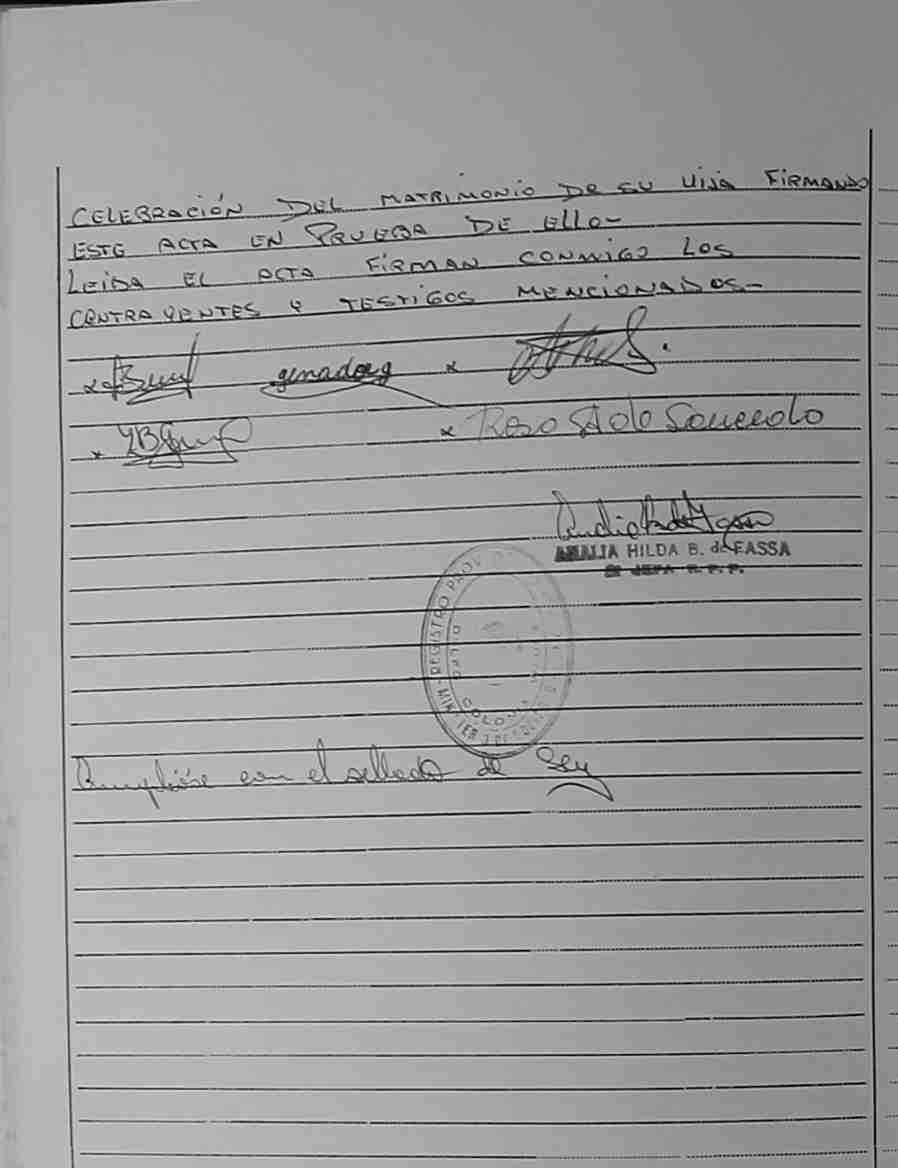 CELEBRACIÓN DEL MATRIMONIO DE SU HIJA FIRMANDO
ESTE ACTA EN PRUEBA DE ELLO-
LEIDA EL ACTA FIRMAN CONMIGO LOS
CONTRAYENTES Y TESTIGOS MENCIONADOS-
x genadoeg x
x x Rosa
AMALIA HILDA B. de FASSA
JEFA R. P. P.
REGISTRO PROV
COLONIA
Cumplióse con el sellado de Ley